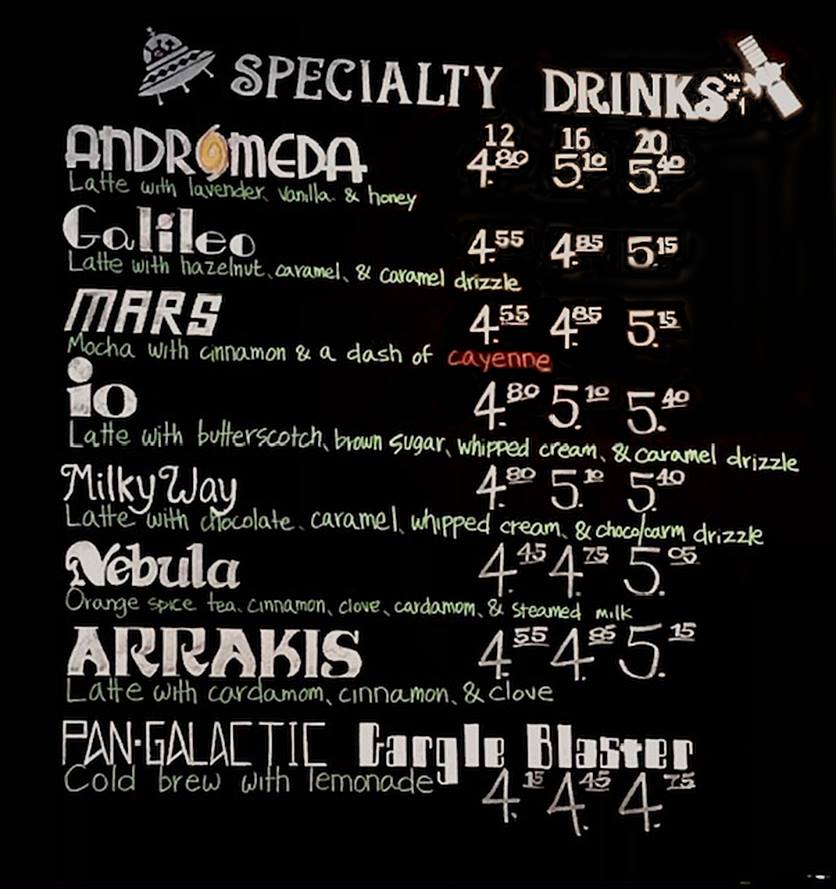 SPECIALTY DRINKS
12 16 20
ANDROMEDA 4.80 5.10 5.40
Latte with lavender, vanilla & honey
Galileo 4.55 4.85 5.15
Latte with hazelnut, caramel, & caramel drizzle
MARS 4.55 4.85 5.15
Mocha with cinnamon & a dash of cayenne
io 4.80 5.10 5.40
Latte with butterscotch, brown sugar, whipped cream, & caramel drizzle
Milky Way 4.80 5.10 5.40
Latte with chocolate, caramel, whipped cream, & choco/carm drizzle
Nebula 4.45 4.75 5.05
Orange spice tea, cinnamon, clove, cardamom, & steamed milk
ARRAKIS 4.55 4.85 5.15
Latte with cardamom, cinnamon, & clove
PAN-GALACTIC Gargle Blaster
Cold brew with lemonade 4.15 4.45 4.75